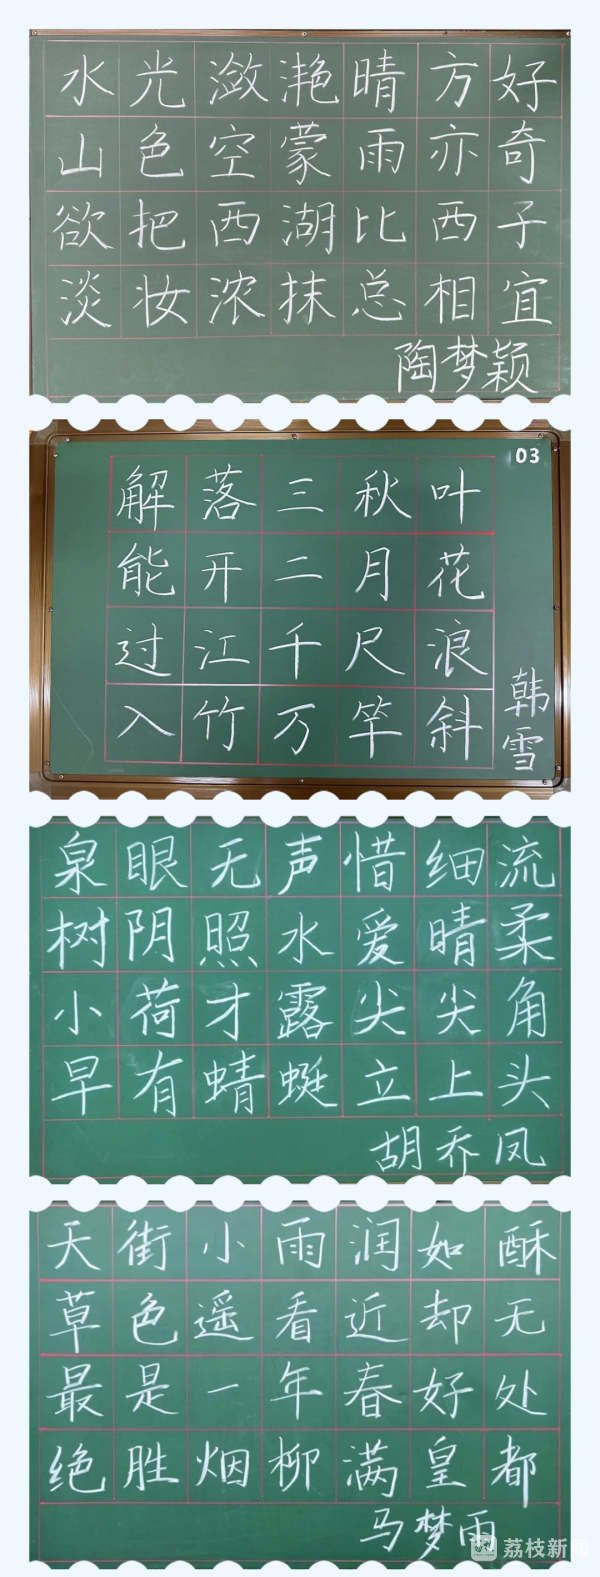 水光潋滟晴方好
山色空蒙雨亦奇
欲把西湖比西子
淡妆浓抹总相宜
陶梦颖
03
解落三秋叶
能开二月花
过江千尺浪
入竹万竿斜
韩雪
泉眼无声惜细流
树阴照水爱晴柔
小荷才露尖尖角
早有蜻蜓立上头
胡乔凤
天街小雨润如酥
草色遥看近却无
最是一年春好处
绝胜烟柳满皇都
马梦雨
荔枝新闻